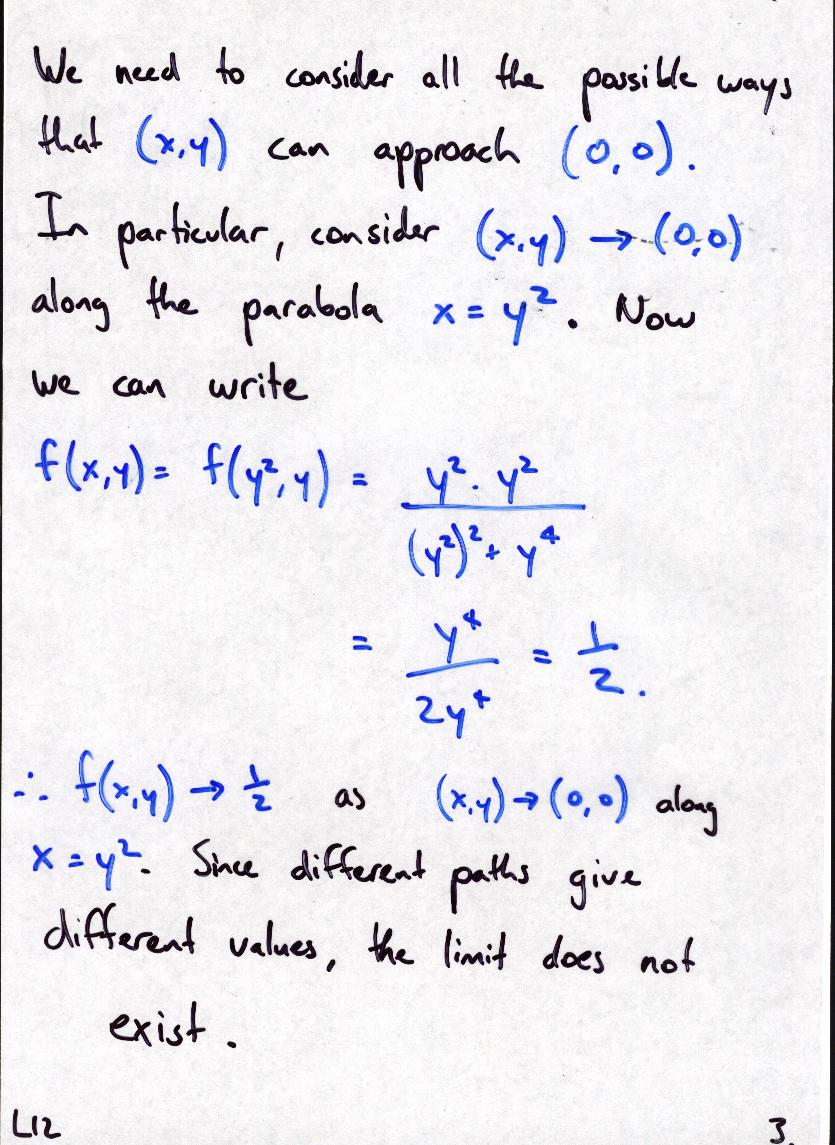 We need to consider all the possible ways
that (x,y) can approach (0,0).
In particular, consider (x,y) → (0,0)
along the parabola x = y². Now
we can write
f(x,y) = f(y²,y) = y² · y² / (y²)² + y⁴
= y⁴ / 2y⁴ = 1/2.
∴ f(x,y) → 1/2 as (x,y) → (0,0) along
x = y². Since different paths give
different values, the limit does not
exist.
L12 3.